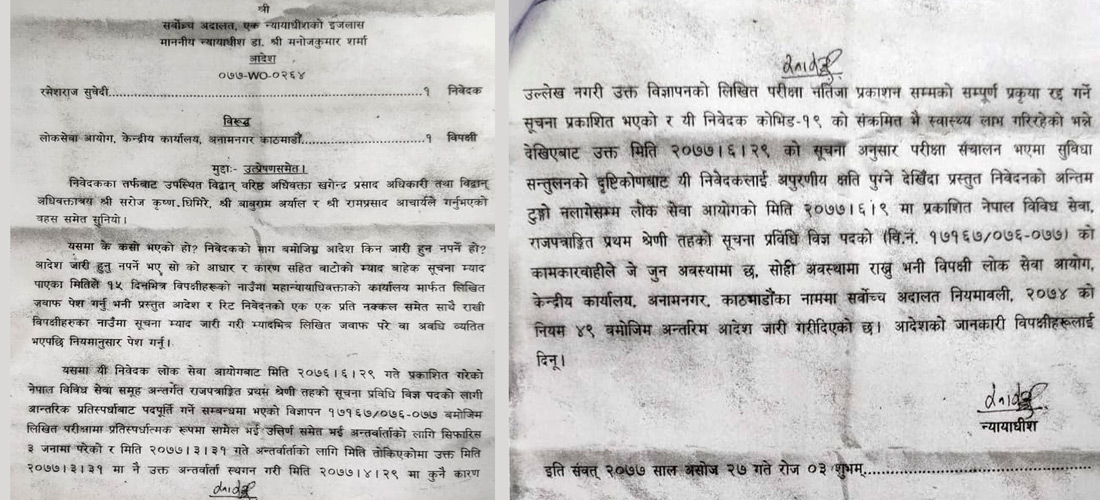 श्री
सर्वोच्च अदालत, एक न्यायाधीशको इजलास
माननीय न्यायाधीश डा. श्री मनोजकुमार शर्मा
आदेश
०७७-WO-०२६४
रमेशराज सुवेदी...........................................................................१ निवेदक
विरूद्ध
लोकसेवा आयोग, केन्द्रीय कार्यालय, अनामनगर काठमाडौं..............................१ विपक्षी
मुद्दाः- उत्प्रेषणसमेत।
निवेदकका तर्फबाट उपस्थित विद्वान् वरिष्ठ अधिवक्ता खगेन्द्र प्रसाद अधिकारी तथा विद्वान्
अधिवक्तात्रय श्री सरोज कृष्ण घिमिरे, श्री बाबुराम अर्याल र श्री रामप्रसाद आचार्यले गर्नुभएको
वहस समेत सुनियो।
यसमा के कसो भएको हो? निवेदकको माग बमोजिम आदेश किन जारी हुन नपर्ने हो?
आदेश जारी हुनु नपर्ने भए सो को आधार र कारण सहित बाटोको म्याद बाहेक सूचना म्याद
पाएका मितिले १५ दिनभित्र विपक्षीहरूको नाउँमा महान्यायाधिवक्ताको कार्यालय मार्फत लिखित
जवाफ पेश गर्नु भनी प्रस्तुत आदेश र रिट निवेदनको एक एक प्रति नक्कल समेत साथै राखी
विपक्षीहरुका नाउँमा सूचना म्याद जारी गरी म्यादभित्र लिखित जवाफ परे वा अवधि व्यतित
भएपछि नियमानुसार पेश गर्नू।
यसमा यी निवेदक लोक सेवा आयोगबाट मिति २०७६।६।२९ गते प्रकाशित गरेको
नेपाल विविध सेवा समूह अन्तर्गत राजपत्राङ्कित प्रथम श्रेणी तहको सूचना प्रविधि विज्ञ पदको लागी
आन्तरिक प्रतिस्पर्धाबाट पदपूर्ति गर्ने सम्बन्धमा भएको विज्ञापन १७१६७/०७६-०७७ बमोजिम
लिखित परीक्षामा प्रतिस्पर्धात्मक रूपमा सामेल भई उत्तिर्ण समेत भई अन्तर्वार्ताको लागि सिफारिस
३ जनामा परेको र मिति २०७७।३।३१ गते अन्तर्वार्ताको लागि मिति तोकिएकोमा उक्त मिति
२०७७।३।३१ मा नै उक्त अन्तर्वार्ता स्थगन गरी मिति २०७७।४।२९ मा कुनै कारण
उल्लेख नगरी उक्त विज्ञापनको लिखित परीक्षा नतिजा प्रकाशन सम्मको सम्पूर्ण प्रकृया रद्द गर्ने
सूचना प्रकाशित भएको र यी निवेदक कोभिड-१९ को संक्रमित भै स्वास्थ्य लाभ गरिरहेको भन्ने
देखिएबाट उक्त मिति २०७७।६।२९ को सूचना अनुसार परीक्षा संचालन भएमा सुविधा
सन्तुलनको दृष्टिकोणबाट यी निवेदकलाई अपुरणीय क्षति पुग्ने देखिँदा प्रस्तुत निवेदनको अन्तिम
टुङ्गो नलागेसम्म लोक सेवा आयोगको मिति २०७७।६।९ मा प्रकाशित नेपाल विविध सेवा,
राजपत्राङ्कित प्रथम श्रेणी तहको सूचना प्रविधि विज्ञ पदको (वि.नं. १७१६७/०७६-०७७) को
कामकारवाहीले जे जुन अवस्थामा छ, सोही अवस्थामा राख्नु भनी विपक्षी लोक सेवा आयोग,
केन्द्रीय कार्यालय, अनामनगर, काठमाडौंका नाममा सर्वोच्च अदालत नियमावली, २०७४ को
नियम ४९ बमोजिम अन्तरिम आदेश जारी गरीदिएको छ। आदेशको जानकारी विपक्षीहरूलाई
दिनू।
न्यायाधीश
इति संवत् २०७७ साल असोज २७ गते रोज ०३ शुभम्.............................................